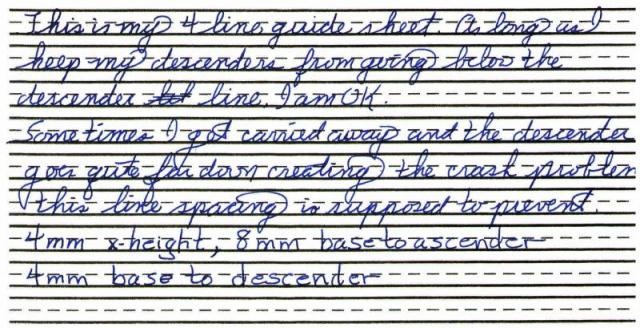 This is my 4 line guide sheet. As long as I
keep my descenders from going below the
descender line, I am OK.
Sometimes I get carried away and the descender
goes quite far down creating the crash problem
this line spacing is supposed to prevent.
4mm x-height, 8mm base to ascender
4mm base to descender